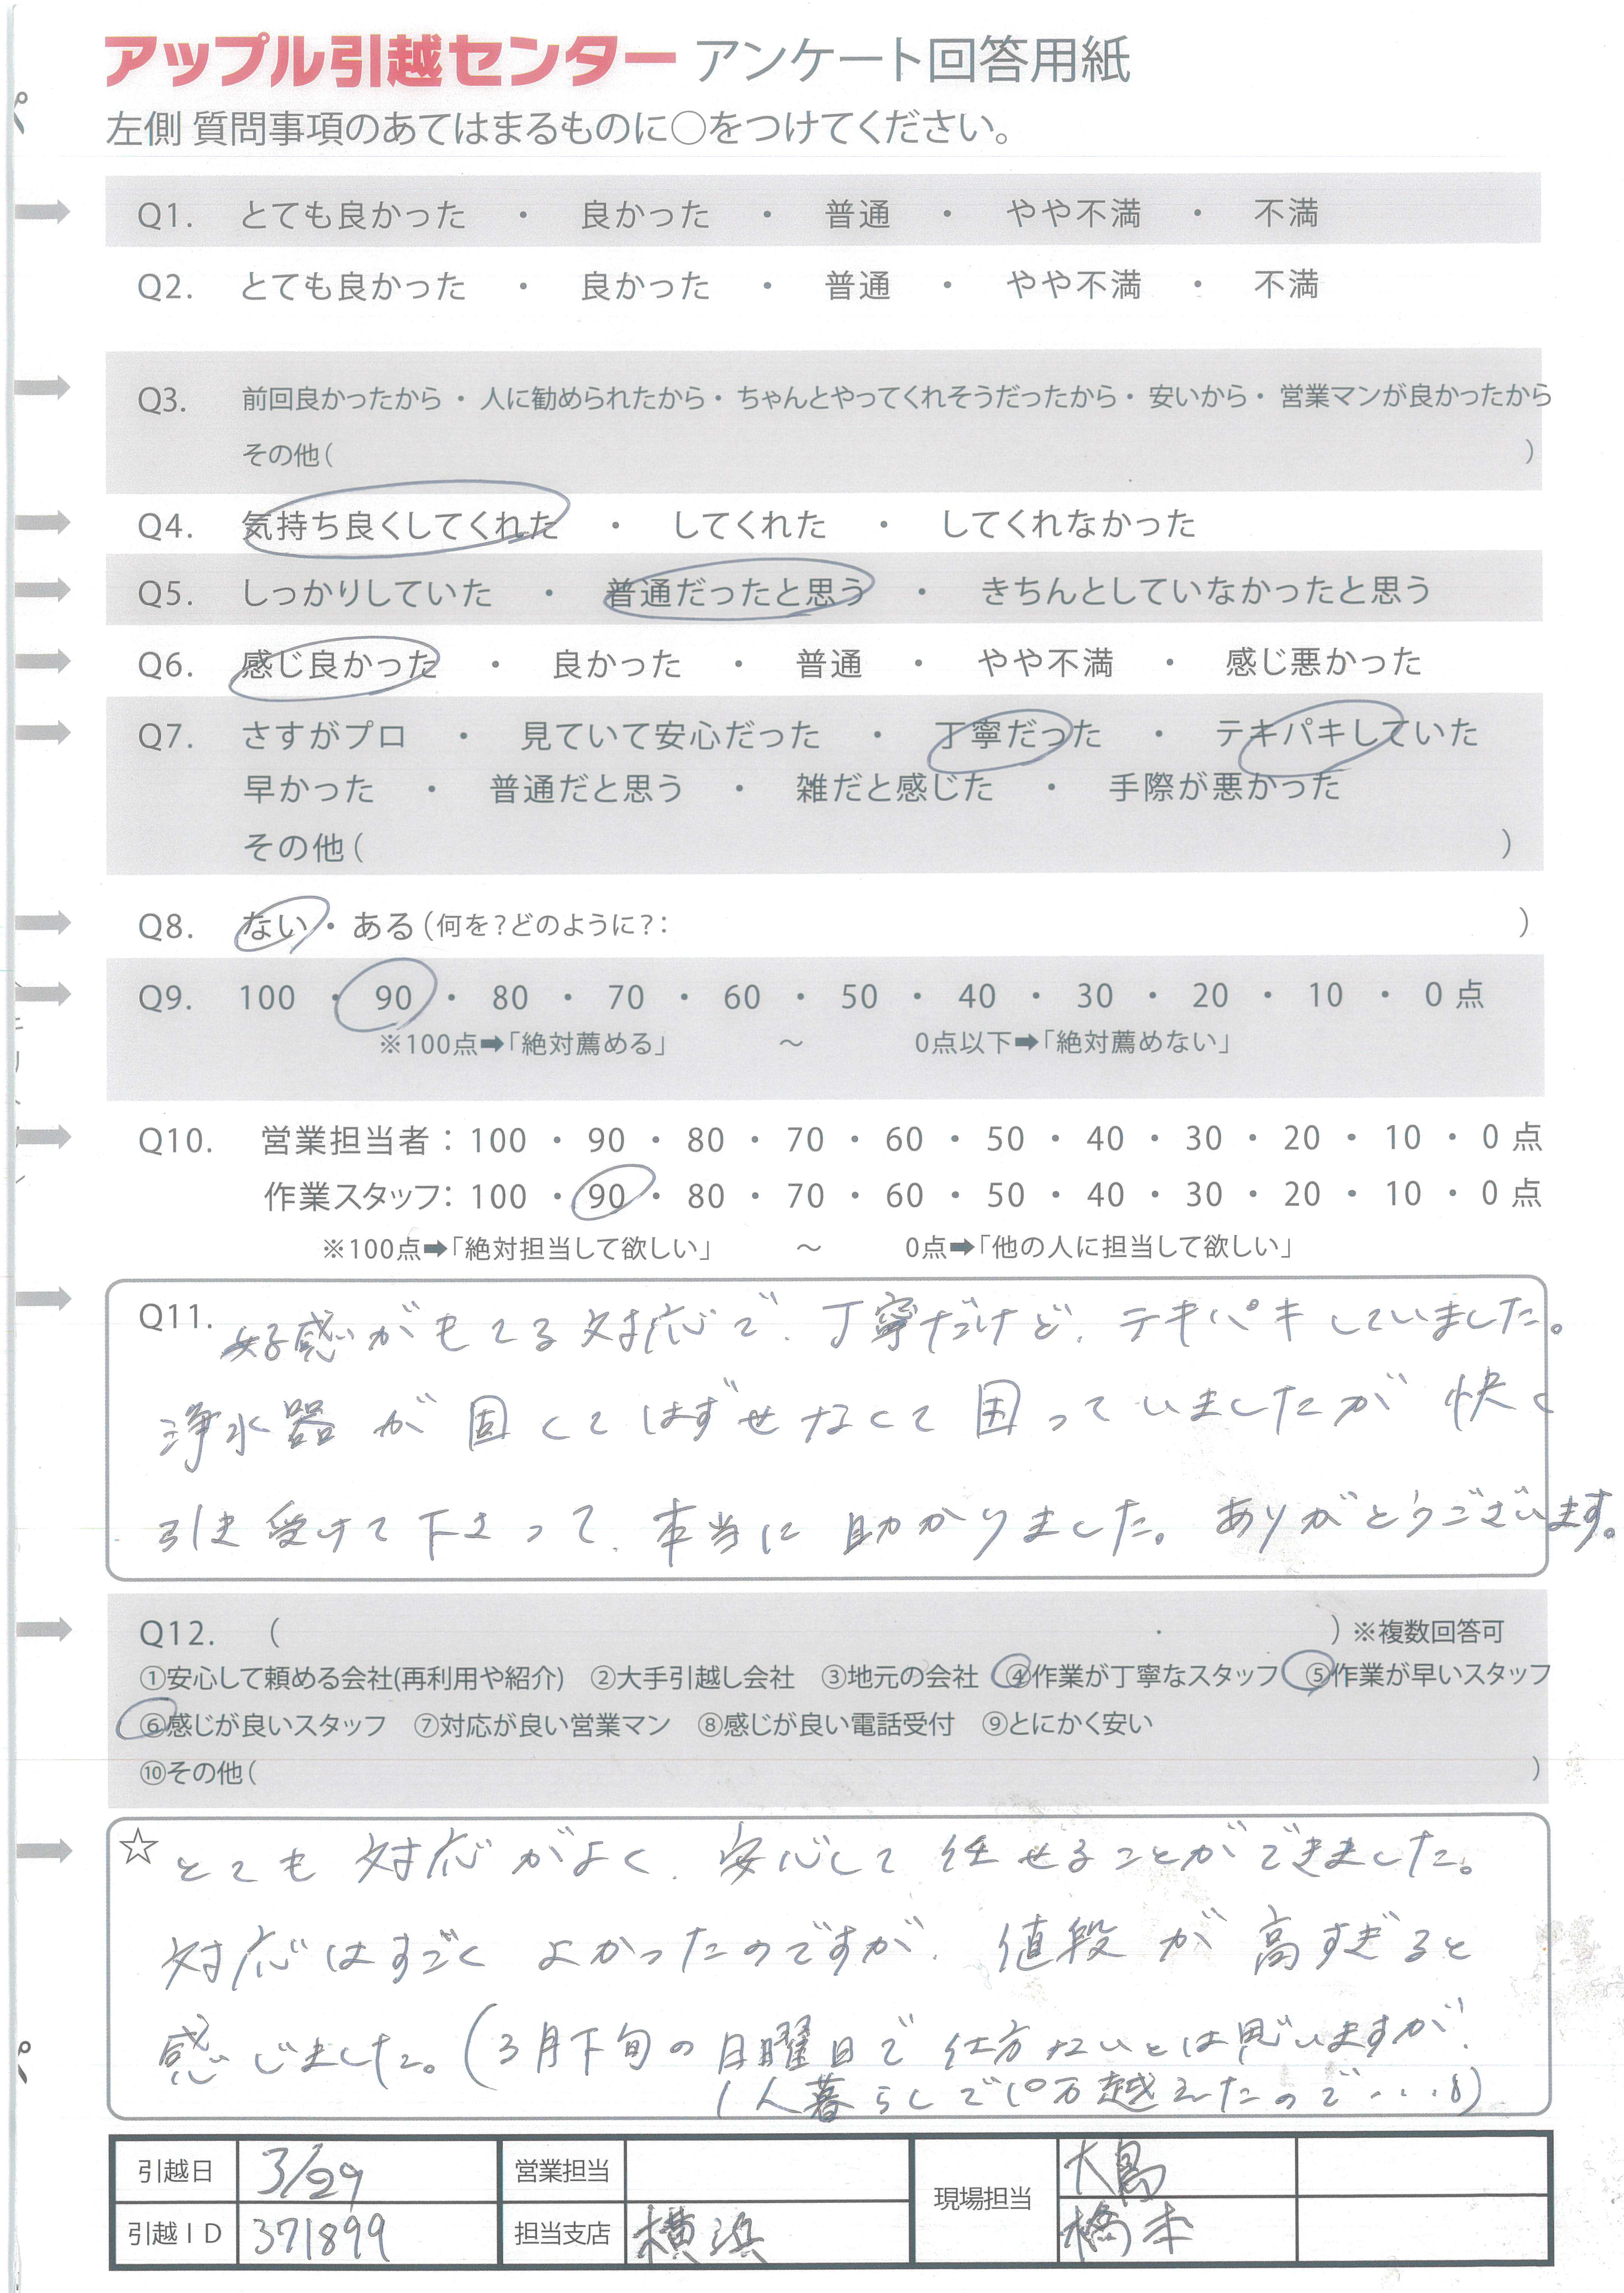 アップル引越センター アンケート回答用紙
左側 質問事項のあてはまるものに○をつけてください。
Q1. とても良かった ・ 良かった ・ 普通 ・ やや不満 ・ 不満
Q2. とても良かった ・ 良かった ・ 普通 ・ やや不満 ・ 不満
Q3. 前回良かったから ・ 人に勧められたから ・ ちゃんとやってくれそうだったから ・ 安いから ・ 営業マンが良かったから
その他( )
Q4. 気持ち良くしてくれた ・ してくれた ・ してくれなかった
Q5. しっかりしていた ・ 普通だったと思う ・ きちんとしていなかったと思う
Q6. 感じ良かった ・ 良かった ・ 普通 ・ やや不満 ・ 感じ悪かった
Q7. さすがプロ ・ 見ていて安心だった ・ 丁寧だった ・ テキパキしていた
早かった ・ 普通だと思う ・ 雑だと感じた ・ 手際が悪かった
その他( )
Q8. ない ・ ある(何を?どのように?: )
Q9. 100 ・ 90 ・ 80 ・ 70 ・ 60 ・ 50 ・ 40 ・ 30 ・ 20 ・ 10 ・ 0 点
※100点➡「絶対薦める」 ~ 0点以下➡「絶対薦めない」
Q10. 営業担当者: 100 ・ 90 ・ 80 ・ 70 ・ 60 ・ 50 ・ 40 ・ 30 ・ 20 ・ 10 ・ 0 点
作業スタッフ: 100 ・ 90 ・ 80 ・ 70 ・ 60 ・ 50 ・ 40 ・ 30 ・ 20 ・ 10 ・ 0 点
※100点➡「絶対担当して欲しい」 ~ 0点➡「他の人に担当して欲しい」
Q11. 好感がもてる対応で、丁寧だけど、テキパキしていました。
浄水器が固くてはずせなくて困っていましたが快く
引き受けて下さって、本当に助かりました。ありがとうございます。
Q12. ( ) ※複数回答可
①安心して頼める会社(再利用や紹介) ②大手引越し会社 ③地元の会社 ④作業が丁寧なスタッフ ⑤作業が早いスタッフ
⑥感じが良いスタッフ ⑦対応が良い営業マン ⑧感じが良い電話受付 ⑨とにかく安い
⑩その他( )
☆とても対応がよく、安心して任せることができました。
対応はすごくよかったのですが、値段が高すぎると
感じました。(3月下旬の日曜日で仕方ないとは思いますが、
1人暮らしで10万越えたので・・・・。)
引越日 3/29 営業担当 現場担当 大島
引越ID 371899 担当支店 横浜 橋本